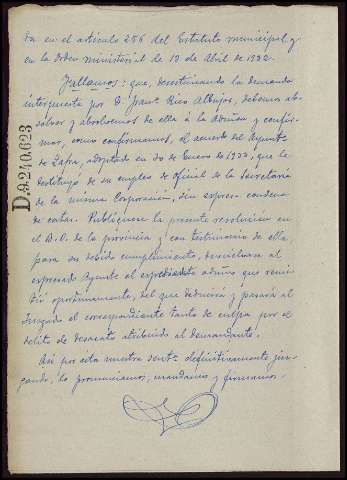 da en el artículo 256 del Estatuto municipal y
en la Orden ministerial de 12 de Abril de 1932.
Fallamos: que, desestimando la demanda
interpuesta por D. Franco Rico Albujos, debemos ab-
solver y absolvemos de ella á la Admon y confir-
mar, como confirmamos, el acuerdo del Ayunto
de Zafra, adoptado en 30 de Enero de 1933, que le
destituyó de su empleo de oficial de la Secretaría
de la misma Corporación, sin expresa condena
de costas. Publíquese la presente resolución en
el B.O. de la provincia y con testimonio de ella
para su debido cumplimiento, devuélvase al
expresado Ayunto el expediente admvo que remi-
tió oportunamente, del que deducirá y pasará al
Juzgado el correspondiente tanto de culpa por el
delito de desacato atribuido al demandante.
Así por esta nuestra senta definitivamente juz-
gando, lo pronunciamos, mandamos y firmamos.
D9,240,623